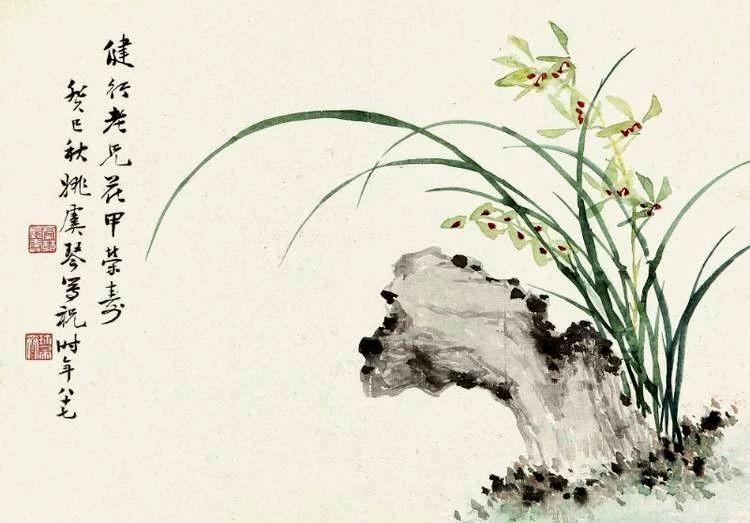 健行老兄花甲荣寿
癸巳秋姚虞琴写祝时年八十七